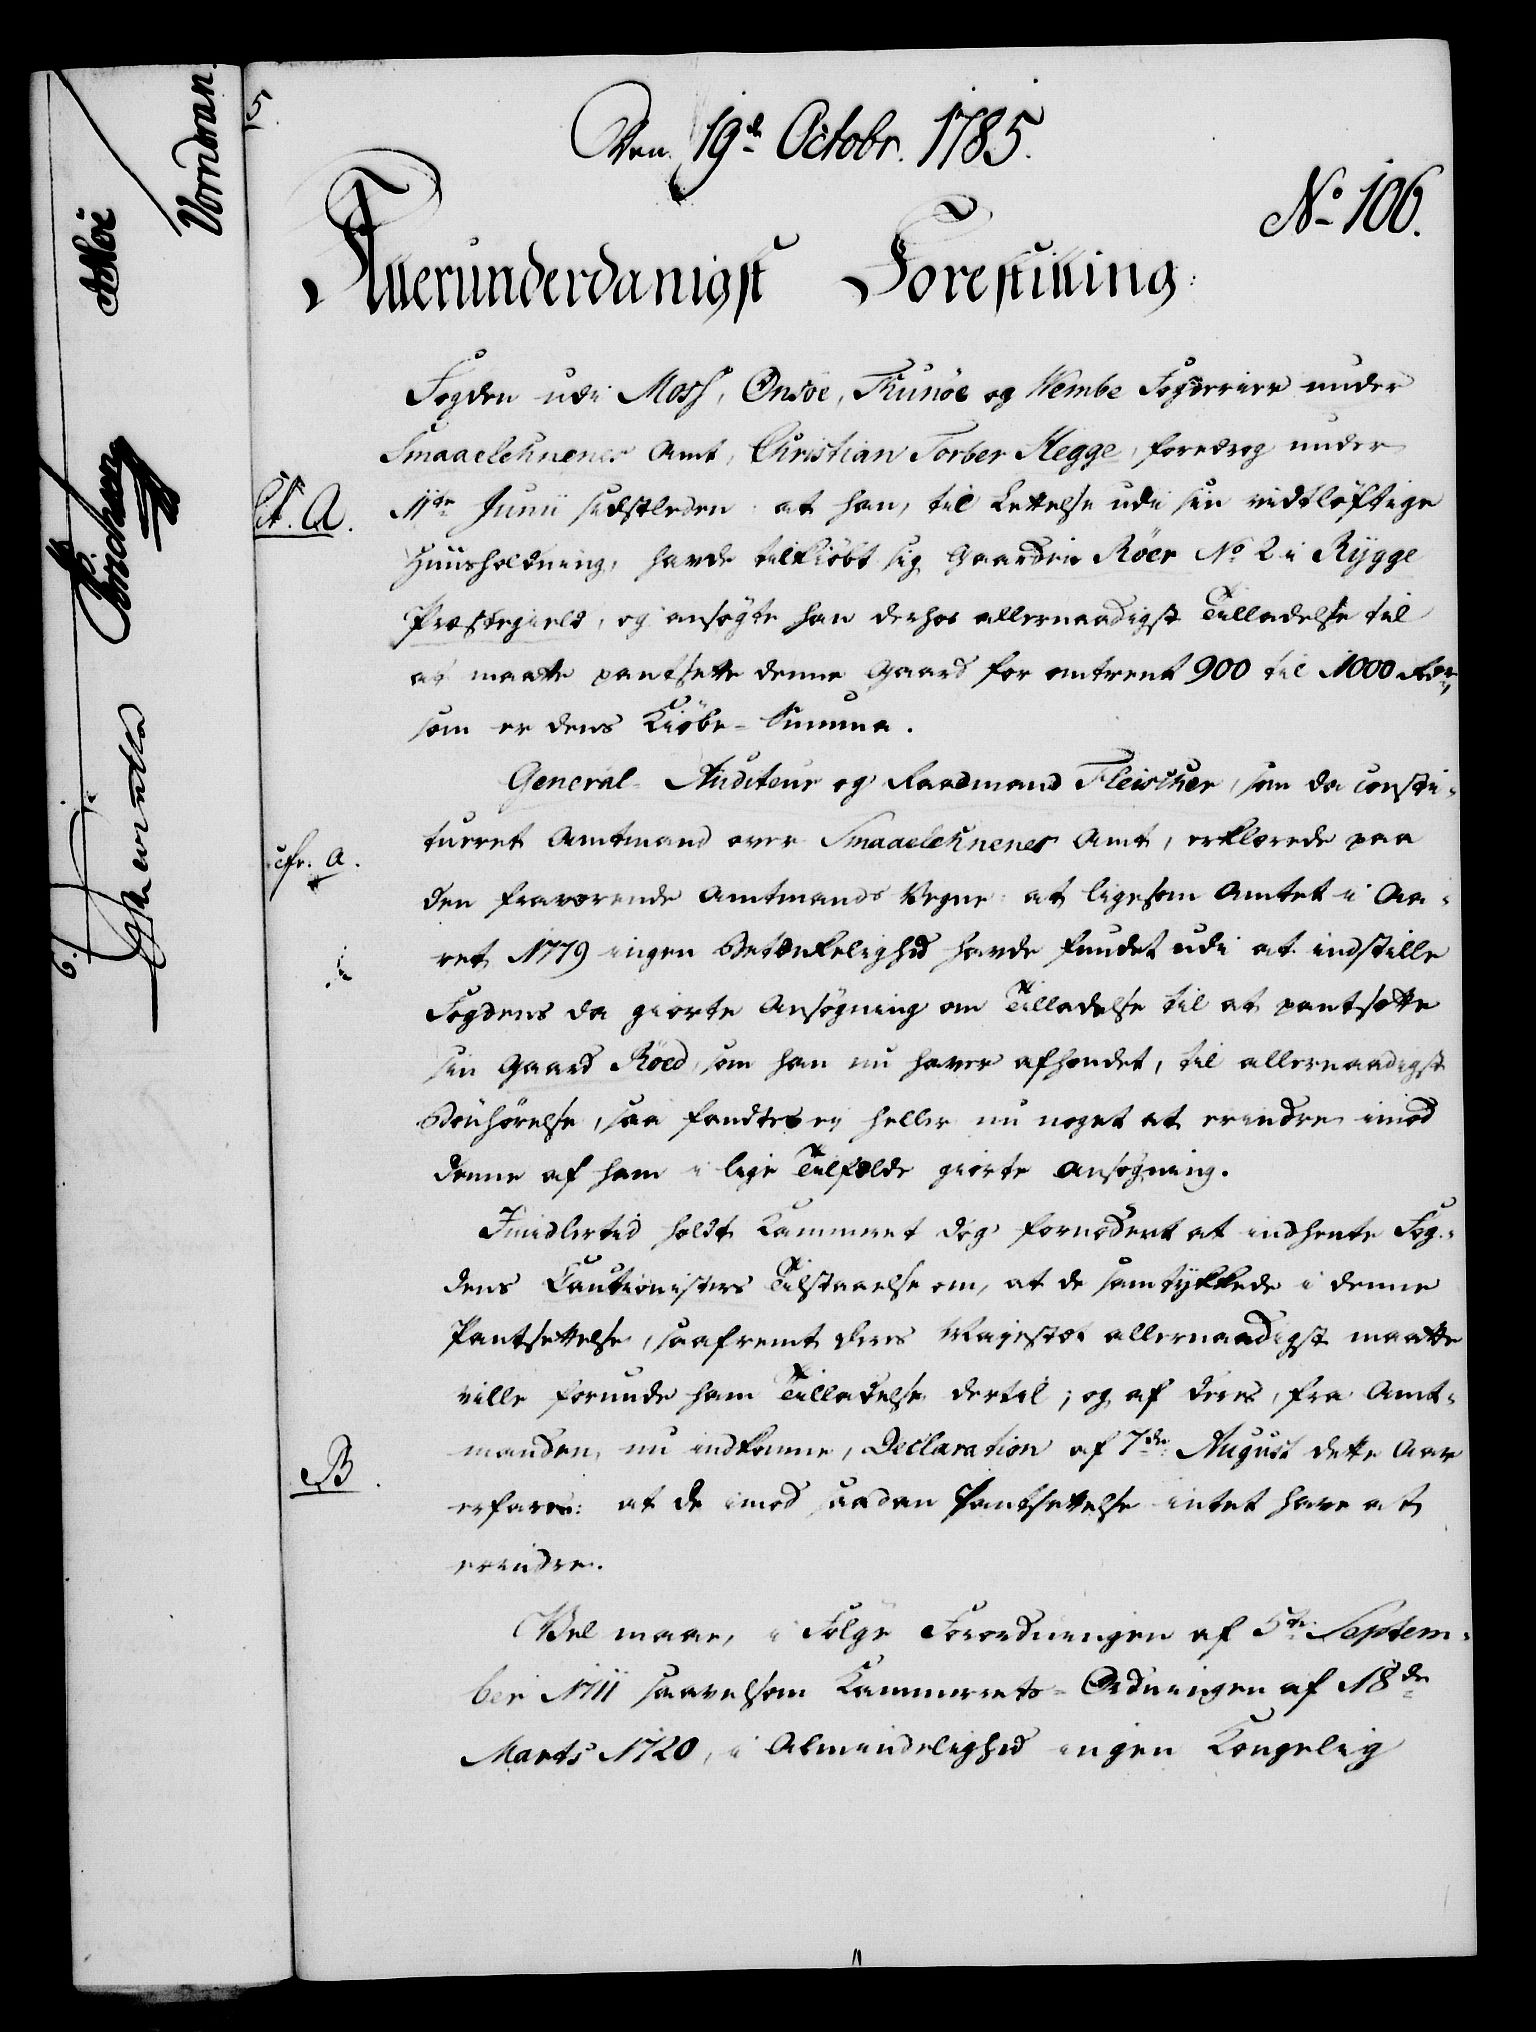 Den 19de Octobr. 1785.
No 106.
Allerunderdanigst Forestilling:
Fogden udi Moss, Onsöe, Thunöe og Wembe Fogderier under
Smaaelehnenes Amt, Christian Torber Hegge, foredrog under
Lit. A.
11te Junii sidstleden at han, til Lettelse udi sin vidtløftige
Huusholdning, havde tilkiøbt sig Gaarden Röer No 2 i Rygge
Præstegield, og ansøgte han derhos allernaadigst Tilladelse til
at maatte pantsette denne Gaard for omtrent 900 til 1000 Rdr,
som er dens Kiøbe-Summa.
General-Auditeur og Raadmand Fleischer, som da consti-
cfr. A.
tueret Amtmand over Smaaelehnenes Amt, erklærede paa
den fraværende Amtmands Vegne at ligesom Amtet i Aa-
ret 1779 ingen Betænkelighed havde fundet udi at indstille
Fogdens da giorte Ansøgning om Tilladelse til at pantsætte
sin Gaard Röed, som han nu haver afhendet, til allernaadigst
Bönhörelse, saa fandtes ey heller nu noget at erindre imod
denne af ham i lige Tilfælde giorte Ansøgning.
Imidlertid holdt Kammeret sig fornødent at indhente Fog-
dens Cautionisters Tilstaaelse om, at de samtykkede i denne
Pantsettelse, saafremt Deres Majestæt allernaadigst maatte
ville forunde ham Tilladelse dertil; og af deres, fra Amt-
manden nu indkomne, Declaration af 7de August dette Aar
B.
erfares: at de imod saadan Pantsettelse intet have at
erindre.
Vel maae, i Følge Forordningen af 5te Septem-
ber 1711 saavelsom Kammerets-Ordningen af 18de
Marts 1720, i Almindelighed ingen Kongelig
Vorndran.
5
6.